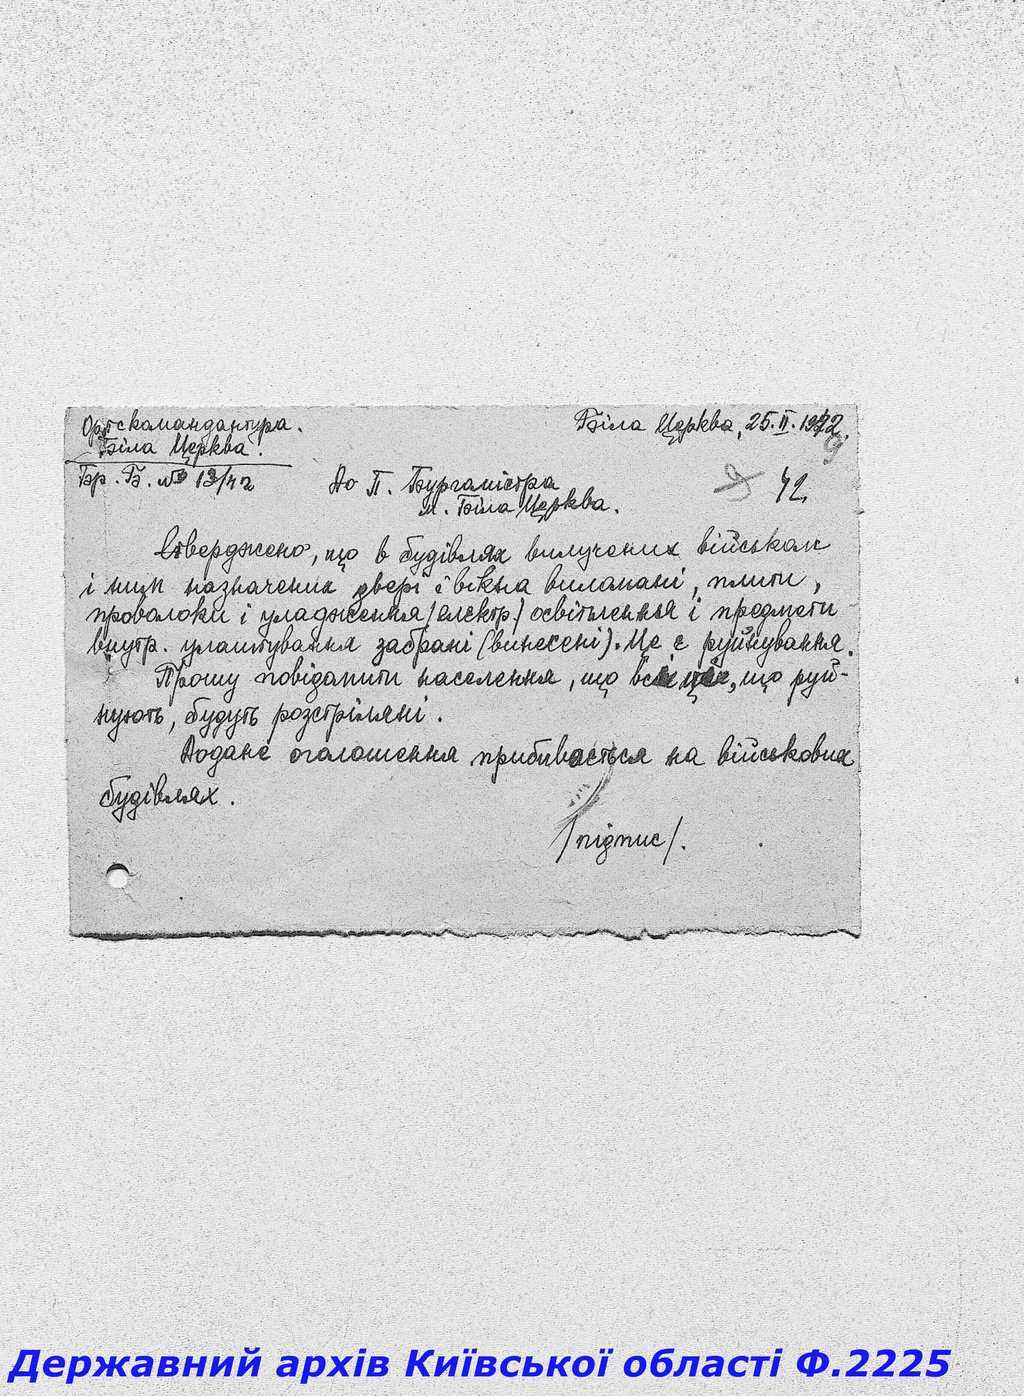 Ортскомандантура.
Біла Церква, 25.II.1942.
Біла Церква.
Бр. Б. № 13/42
До П. Бургамістра
42.
м. Біла Церква.
Стверджено, що в будівлях вилучених військом
і ним назначених двері і вікна виламані, плити,
проволоки і уладження (електр.) освітлення і предмети
внутр. улаштування забрані (винесені). Це є руйнування.
Прошу повідамити населення, що всі, що руй-
нують, будуть розстріляні.
Додане оголошення прибивається на військових
будівлях.
/підпис/.
Державний архів Київської області Ф.2225